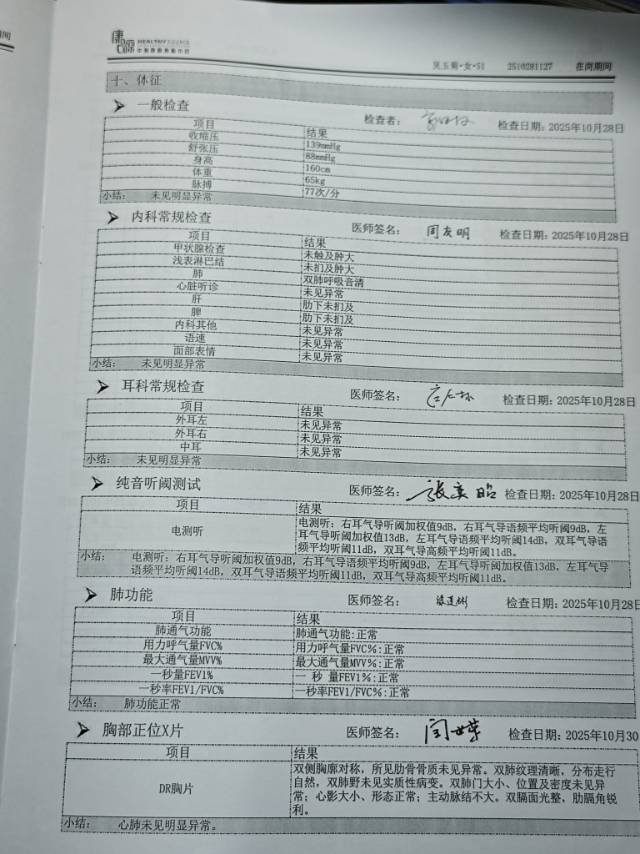 康源
HEALTHY
吴玉菊·女·51 2510281127 在岗期间
十、体征
一般检查 检查者： 检查日期：2025年10月28日
项目 结果
收缩压 139mmHg
舒张压 88mmHg
身高 160cm
体重 65kg
脉搏 77次/分
小结： 未见明显异常
内科常规检查 医师签名： 周友明 检查日期：2025年10月28日
项目 结果
甲状腺检查 未触及肿大
浅表淋巴结 未扪及肿大
肺 双肺呼吸音清
心脏听诊 未见异常
肝 肋下未扪及
脾 肋下未扪及
内科其他 未见异常
语速 未见异常
面部表情 未见异常
小结： 未见明显异常
耳科常规检查 医师签名： 检查日期：2025年10月28日
项目 结果
外耳左 未见异常
外耳右 未见异常
中耳 未见异常
小结： 未见明显异常
纯音听阈测试 医师签名： 检查日期：2025年10月28日
项目 结果
电测听 电测听：右耳气导听阈加权值9dB，右耳气导语频平均听阈9dB，左
耳气导听阈加权值13dB，左耳气导语频平均听阈14dB，双耳气导语
频平均听阈11dB，双耳气导高频平均听阈11dB。
小结： 电测听：右耳气导听阈加权值9dB，右耳气导语频平均听阈9dB，左耳气导听阈加权值13dB，左耳气导
语频平均听阈14dB，双耳气导语频平均听阈11dB，双耳气导高频平均听阈11dB。
肺功能 医师签名： 检查日期：2025年10月28日
项目 结果
肺通气功能 肺通气功能:正常
用力呼气量FVC% 用力呼气量FVC%:正常
最大通气量MVV% 最大通气量MVV%:正常
一秒量FEV1% 一 秒 量FEV1%:正常
一秒率FEV1/FVC% 一秒率FEV1/FVC%:正常
小结： 肺功能正常
胸部正位X片 医师签名： 检查日期：2025年10月30
项目 结果
DR胸片 双侧胸廓对称，所见肋骨骨质未见异常。双肺纹理清晰，分布走行
自然，双肺野未见实质性病变。双肺门大小、位置及密度未见异
常；心影大小、形态正常；主动脉结不大。双膈面光整，肋膈角锐
利。
小结： 心肺未见明显异常。